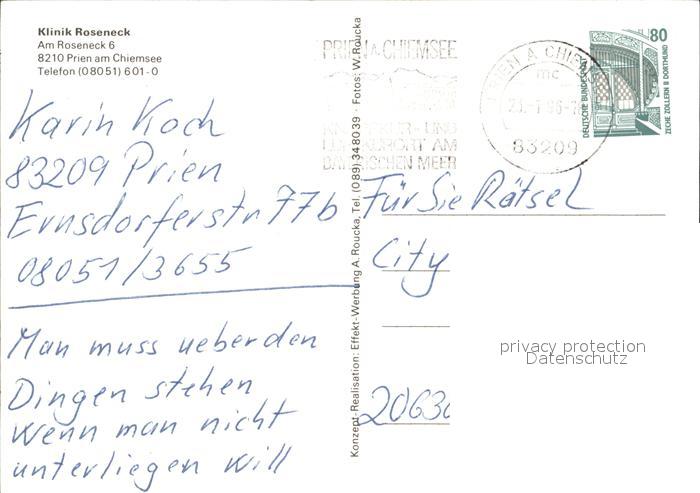 Klinik Roseneck
Am Roseneck 6
8210 Prien am Chiemsee
Telefon (08051) 601-0
Karin Koch
83209 Prien
Ernsdorferstr 77b
08051/3655
Man muss ueber den
Dingen stehen
wenn man nicht
unterliegen will
Konzept-Realisation: Effekt-Werbung A. Roucka, Tel. (089) 348039 · Fotos: W. Roucka
PRIEN A. CHIEMSEE
UND
LUFTKURORT AM
BAYERISCHEN MEER
PRIEN A CHIEMSEE
mc
83209
80
DEUTSCHE BUNDESPOST
ZECHE ZOLLERN II DORTMUND
Für Sie Rätsel
City
2063
privacy protection
Datenschutz